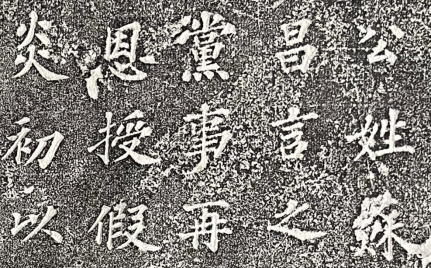 公姓
昌言之
黨事再
恩授假
炎初以